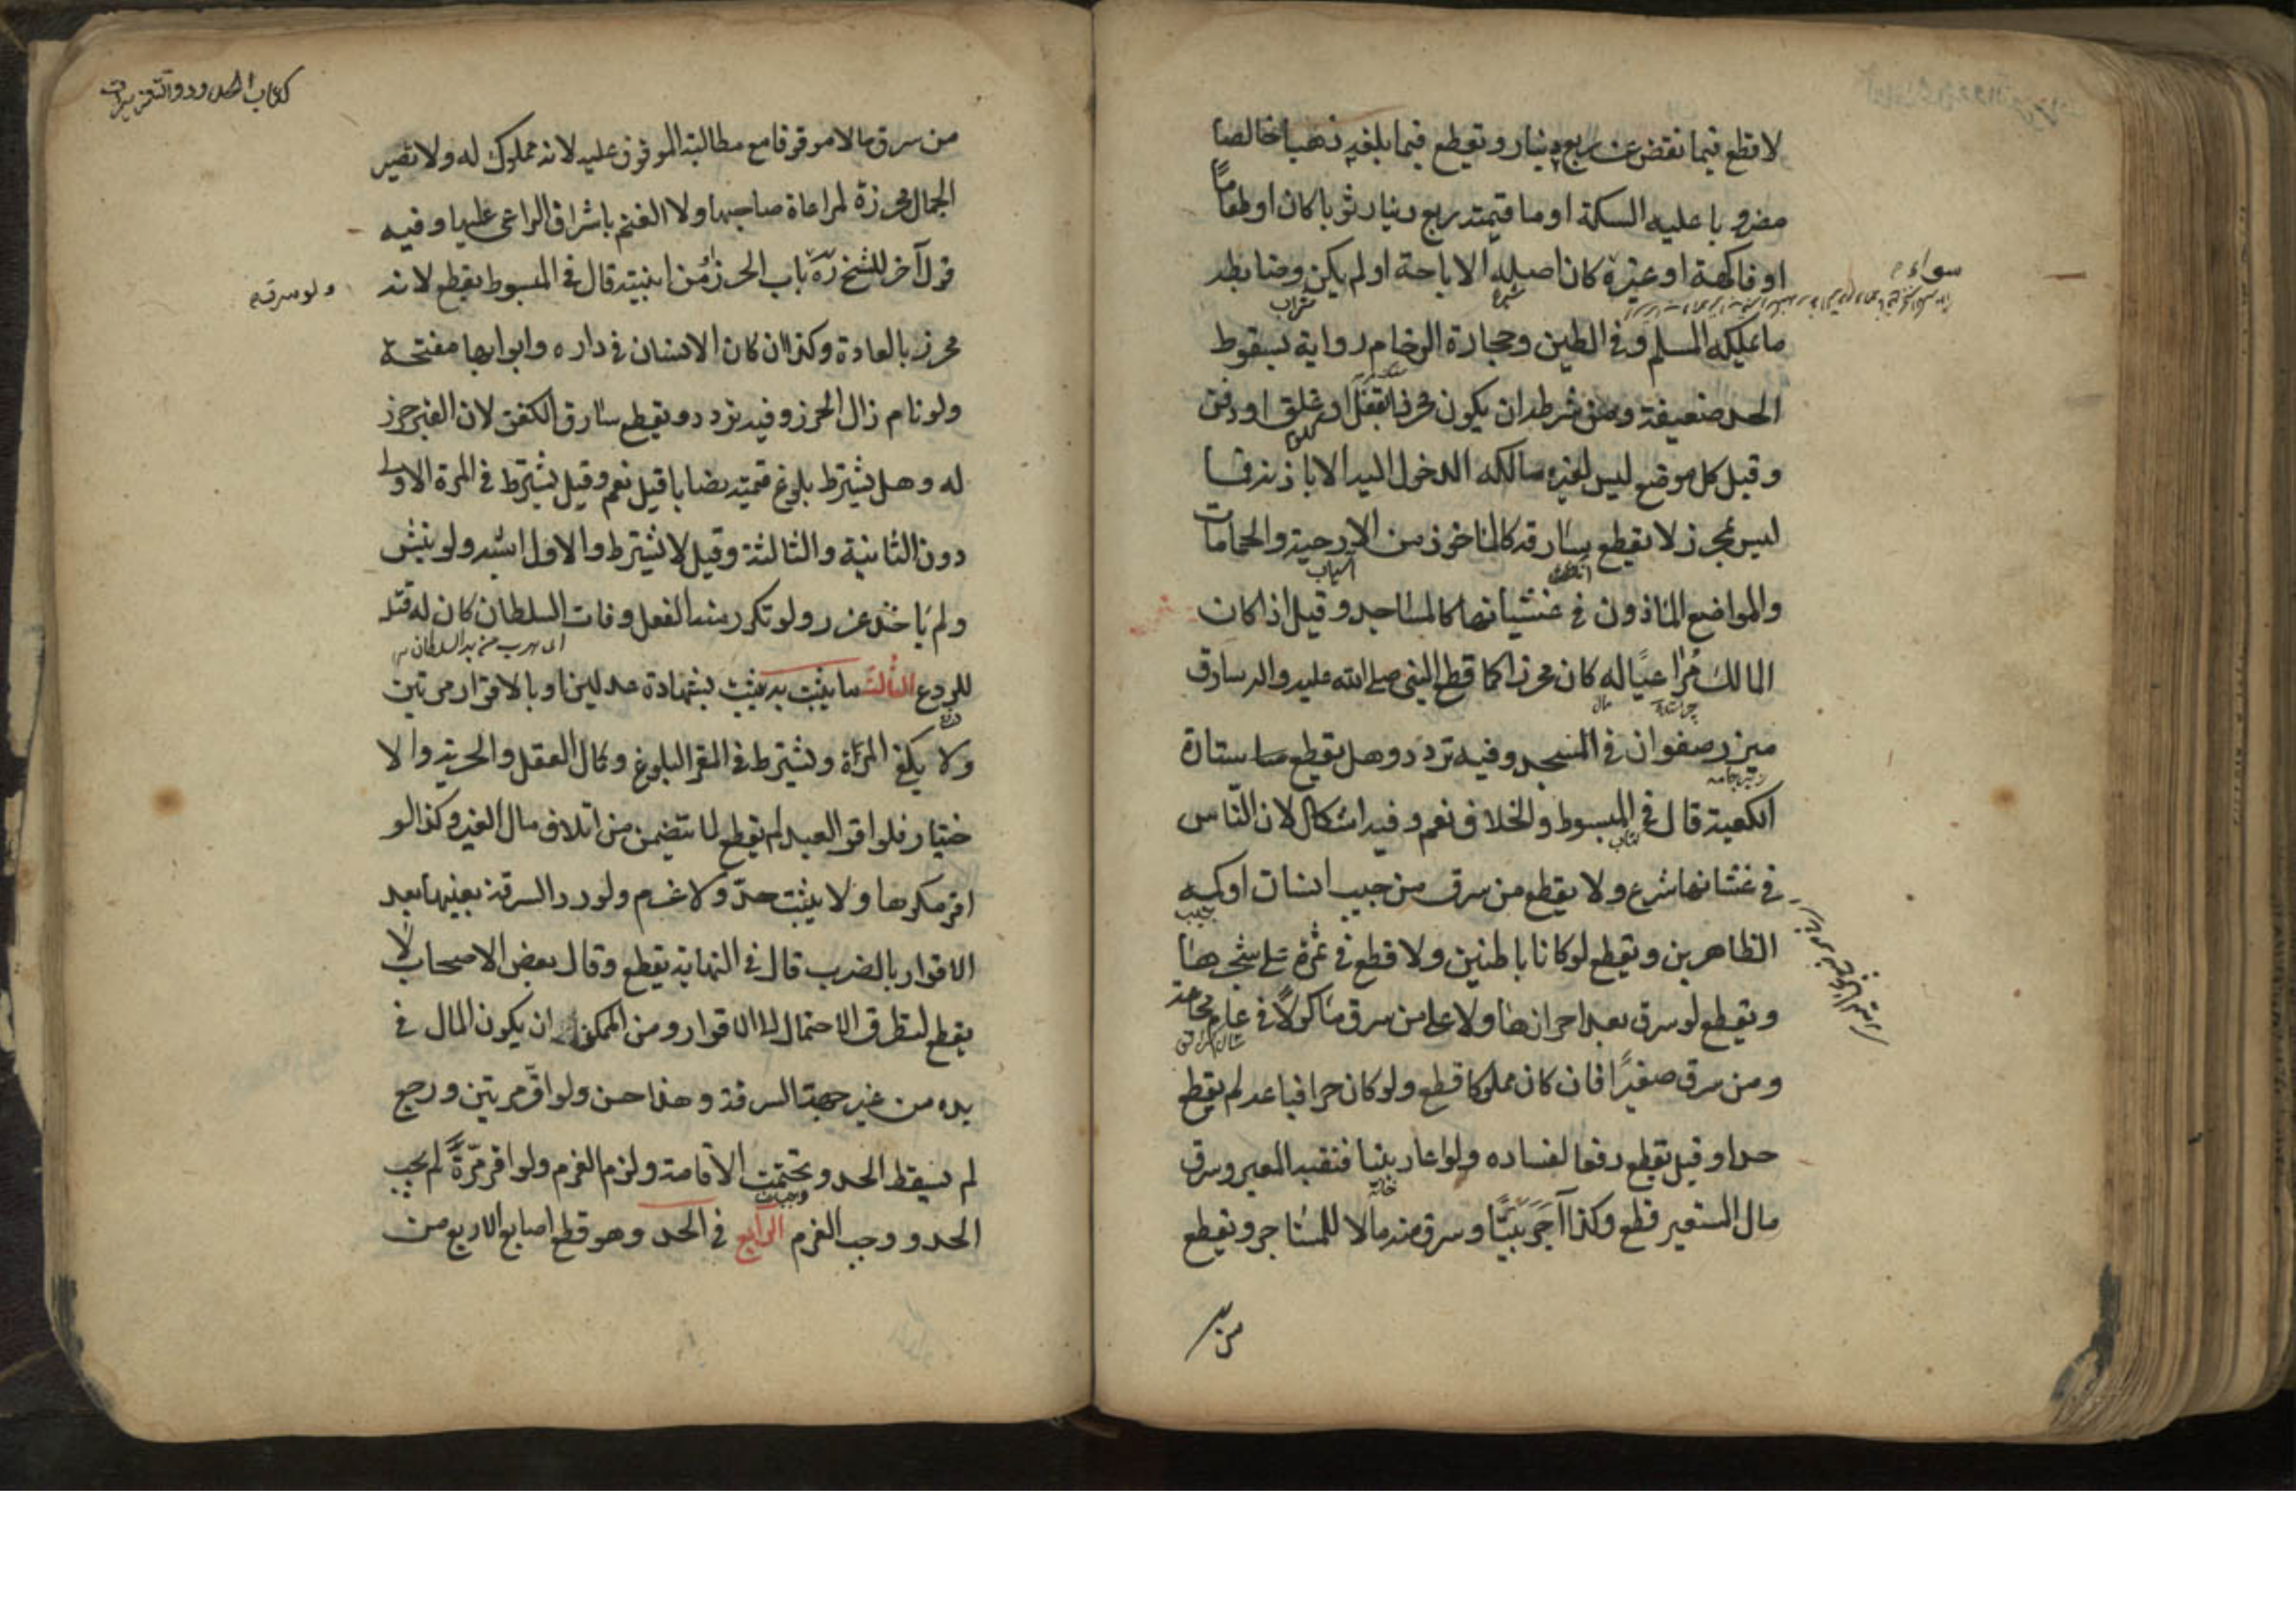 لا قطع فيما نقص عن ربع دينار ويقطع فيما بلغه ذهبا خالصا
مضروبا عليه السكة او ما قيمته ربع دينار ثوبا كان او طعاما
او فاكهة او غيره كان اصله الاباحة او لم يكن وضابطه
سواء
ما يملكه المسلم وفي الطين وحجارة الرخام رواية بسقوط
الحد ضعيفة ومن شرطه ان يكون محرزا بقفل او غلق او دفن
وقيل كل موضع ليس لغير مالكه الدخول اليه الا باذنه فما
ليس بمحرز لا يقطع سارقه كالماخوذ من الارحية والحمامات
آسیاب
والمواضع الماذون في غشيانها كالمساجد وقيل اذا كان
المالك مراعيا له كان محرزا كما قطع النبي صلى الله عليه واله سارق
مال
ميزر صفوان في المسجد وفيه تردد وهل يقطع سا ستارة
الكعبة قال في المبسوط والخلاف نعم وفيه اشكال لان الناس
كتاب
في غشانها شرع ولا يقطع من سرق من جيب انسان او كمه
الظاهرين ويقطع لو كانا باطنين ولا قطع في ثمرة على شجرها
ويقطع لو سرق بعد احرازها ولا على من سرق ماكولا في عام مجاعة
ومن سرق صغيرا فان كان مملوكا قطع ولو كان حرا فباعه لم يقطع
حدا وقيل يقطع دفعا لفساده ولو اعار بيتا فنقبه المعير وسرق
خانه
مال المستعير قطع وكذا آجَرَ بَيتًا وسرق منه مالا للمستاجر ويقطع
من سر
كتاب الحدود والتعزيرات
من سرق مالا موقوفا مع مطالبة الموقوف عليه لانه مملوك له ولا تصير
الجمال محرزة لمراعاة صاحبها ولا الغنم باشراف الراعي عليها وفيه
قول آخر للشيخ ره باب الحرز من ابنيته قال في المبسوط يقطع لانه
ولو سرق
محرز بالعادة وكذا ان كان الانسان في داره وابوابها مفتحة
ولو نام زال الحرز وفيه تردد ويقطع سارق الكفن لان القبر حرز
له وهل يشترط بلوغ قيمته نصابا قيل نعم وقيل يشترط في المرة الاولى
دون الثانية والثالثة وقيل لا يشترط والاول اشبه ولو نبش
ولم ياخذ عزر ولو تكرر منه الفعل وفات السلطان كان له قتله
اى هرب من يد السلطان
للردع الثالث ما يثبت به يثبت بشهادة عدلين او بالاقرار مرتين
ولا يكفي المراة ويشترط في المقر البلوغ وكمال العقل والحرية والا
ختيار فلو اقر العبد لم يقطع لما يتضمن من اتلاف مال الغير وكذا لو
اقر مكرها ولا يثبت حد ولا غرم ولو رد السرقة بعينها بعد
الاقرار بالضرب قال في النهاية يقطع وقال بعض الاصحاب لا
يقطع لتطرق الاحتمال الى الاقرار ومن الممكن ان يكون المال في
يده من غير جهة السرقة وهذا حسن ولو اقر مرتين ورجع
لم يسقط الحد وتحتمت الاقامة ولزم الغرم ولو اقر مرّةً لم يجب
الحد ووجب الغرم الرابع في الحد وهو قطع اصابع الاربع من